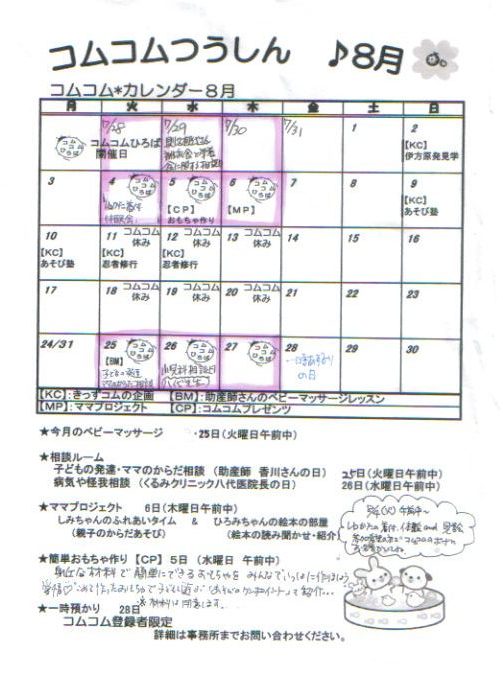 コムコムつうしん ♪8月
コムコム*カレンダー8月
月 火 水 木 金 土 日
7/28 7/29 7/30 7/31 1 2
コムコムひろば
開催日
コムコムひろば
【KC】
伊方原発見学
3 4 5 6 7 8 9
コムコムひろば コムコムひろば コムコムひろば
【CP】
おもちゃ作り
【MP】
【KC】
あそび塾
10 11 12 13 14 15 16
コムコム休み コムコム休み コムコム休み
【KC】
あそび塾
【KC】
忍者修行
【KC】
忍者修行
17 18 19 20 21 22 23
コムコム休み コムコム休み コムコム休み
24/31 25 26 27 28 29 30
コムコムひろば コムコムひろば コムコムひろば
【BM】
小児科相談日
(八代先生)
一時あずかり
の日
【KC】:きっずコムの企画 【BM】:助産師さんのベビーマッサージレッスン
【MP】:ママプロジェクト 【CP】:コムコムプレゼンツ
★今月のベビーマッサージ ・25日(火曜日午前中)
★相談ルーム
子どもの発達・ママのからだ相談 (助産師 香川さんの日) 25日(火曜日午前中)
病気や怪我相談 (くるみクリニック八代医院長の日) 26日(水曜日午前中)
★ママプロジェクト 6日(木曜日午前中)
しみちゃんのふれあいタイム & ひろみちゃんの絵本の部屋
(親子のからだあそび) (絵本の読み聞かせ・紹介)
★簡単おもちゃ作り【CP】5日 (水曜日 午前中)
身近な材料で簡単にできるおもちゃをみんなでいっしょに作りましょう
材料は用意します。
★一時預かり 28日
コムコム登録者限定
詳細は事務所までお問い合わせください。